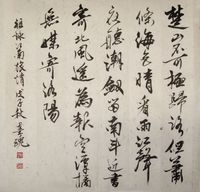 楚山不可極歸路但蕭
條海色晴看雨江聲
夜聽潮劍留南斗近書
寄北風遙為報空潭橘
無媒寄洛
祖詠 情 戊子秋